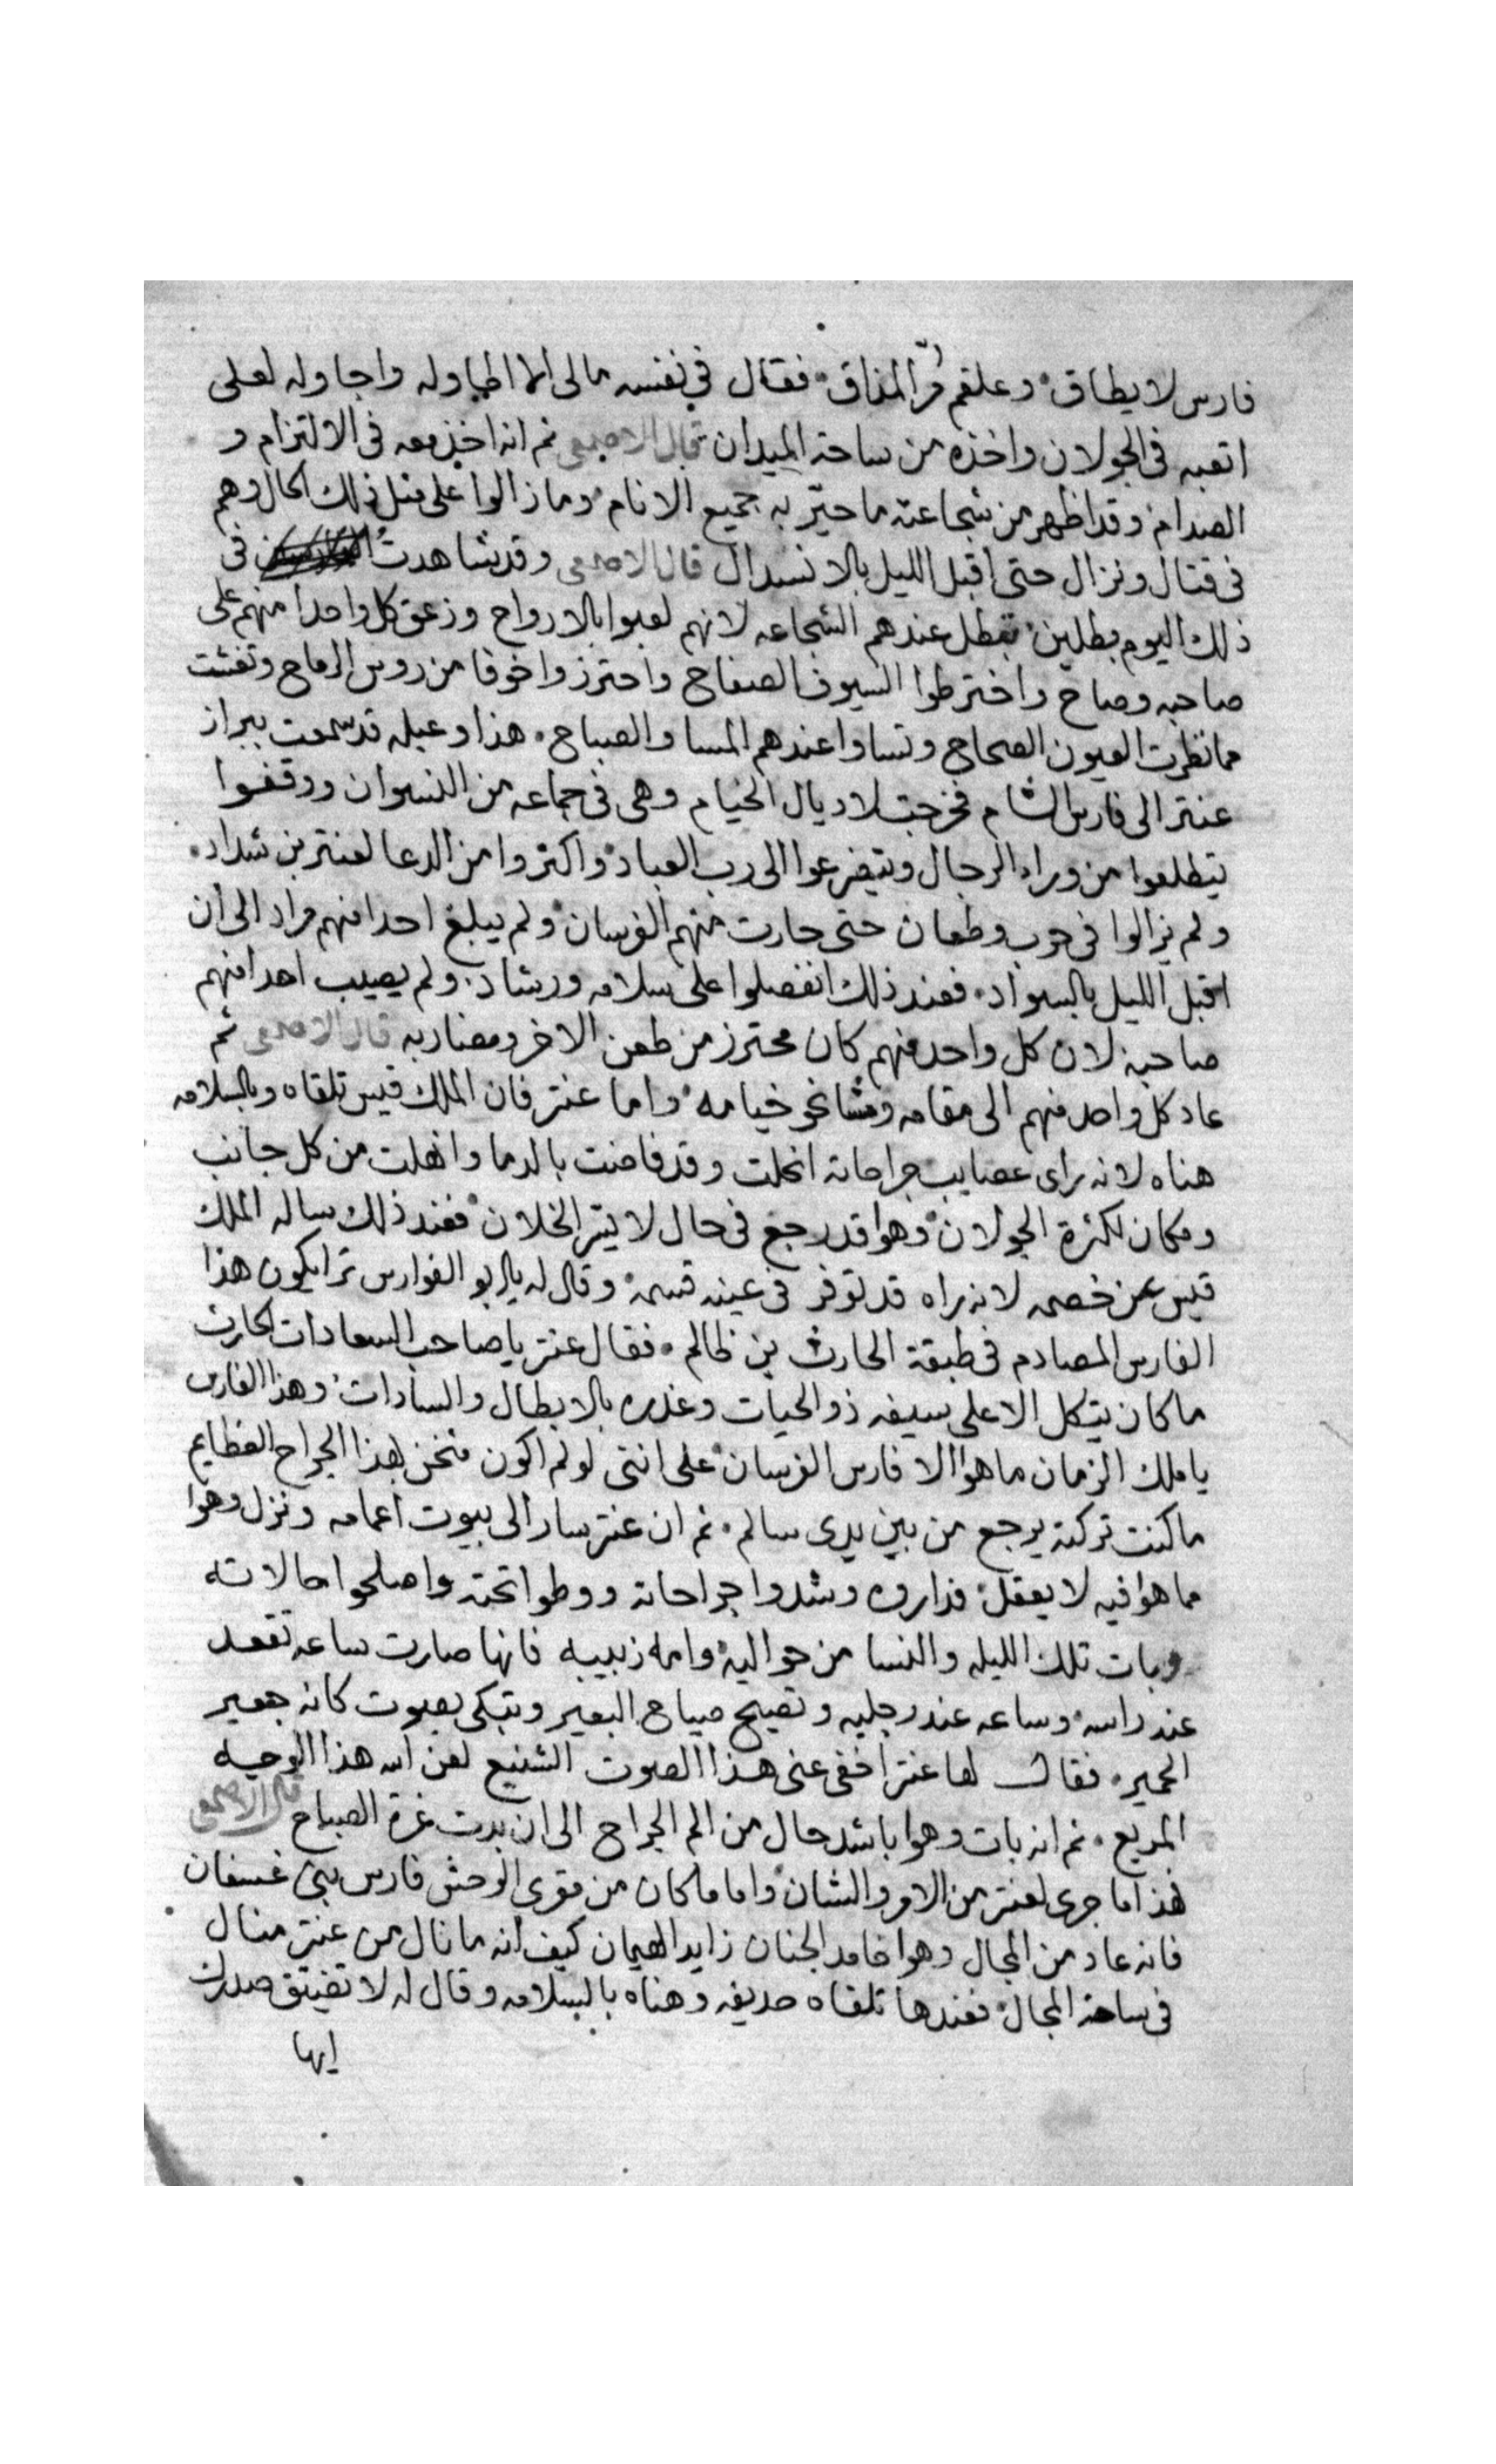 فارس لا يطاق وعلقم مُرّ المذاق فقال في نفسه مالي الا اطاوله واجاوله لعلي
اتعبه في الجولان واخذه من ساحة الميدان قال الاصمعي ثم انه اخذ معه في الالتزام و
الصدام وقد اظهر من شجاعته ما حيّر به جميع الانام وما زالوا على مثل ذلك الحال وهم
في قتال ونزال حتى اقبل الليل بالانسدال قال الاصمعي وقد شاهدتُ في
ذلك اليوم بطلين تبطل عندهم الشجاعه لانهم لعبوا بالارواح وزعق كل واحدا منهم على
صاحبه وصاح واخترطوا السيوف الصفاح واحترزوا خوفا من روس الرماح وتغشت
مما نظرت العيون الصحاح وتساوا عندهم المسا والصباح هذا وعبله قد سمعت ببراز
عنتر الى فارس الشام فخرجت لاديال الخيام وهى في جماعه من النسوان ووقفوا
يتطلعوا من وراء الرجال ويتضرعوا الى رب العباد واكثروا من الدعا لعنتر بن شداد
ولم يزالوا في حرب وطعان حتى حارت منهم الفرسان ولم يبلغ احدا منهم مراد الى ان
اقبل الليل بالسواد فعند ذلك انفصلوا على سلامه ورشاد ولم يصيب احدا منهم
صاحبه لان كل واحد منهم كان محترز من طعن الاخر ومضاربه قال الاصمعي ثم
عاد كل واحد منهم الى مقامه ومشا نحو خيامه واما عنتر فان الملك قيس تلقاه وبالسلامه
هناه لانه راى عصايب جراحاته انحلت وقد فاضت بالدما وانهلت من كل جانب
ومكان لكثرة الجولان وهوا قد رجع في حال لا يسر الخلان فعند ذلك ساله الملك
قيس عن خصمه لانه راه قد توفر في عينه قسمه وقال له يا ابو الفوارس ترا يكون هذا
الفارس المصادم في طبقة الحارث بن ظالم فقال عنتر يا صاحب السعادات الحارث
ما كان يتكل الا على سيفه ذو الحيات وغدره بالابطال والسادات وهذا الفارس
يا ملك الزمان ما هوا الا فارس الفرسان على انني لو لم اكون مثخن بهذا الجراح العظايم
ما كنت تركته يرجع من بين يدى سالم ثم ان عنتر سار الى بيوت اعمامه ونزل وهوا
مما هوا فيه لا يعقل فداروه وشدوا جراحاته ووطوا تحته واصلحوا حالاته
وبات تلك الليله والنسا من حواليه وامه زبيبه فانها صارت ساعه تقعد
عند راسه وساعه عند رجليه وتصيح صياح البعير وتبكي بصوت كانه جعير
الحمير فقال لها عنتر اخفي عني هذا الصوت الشنيع لعن الله هذا الوجه
المريع ثم انه بات وهوا باشد حال من الم الجراح الى ان بدت غرة الصباح قال الاصمعي
هذا ما جرى لعنتر من الامر والشان واما ما كان من مقرى الوحش فارس بني غسان
فانه عاد من المجال وهوا خامد الجنان زايد الهيمان كيف انه ما نال من عنتر منال
في ساحة المجال فعندها تلقاه حديفه وهناه بالسلامه وقال له لا تضيق صدرك
ايها